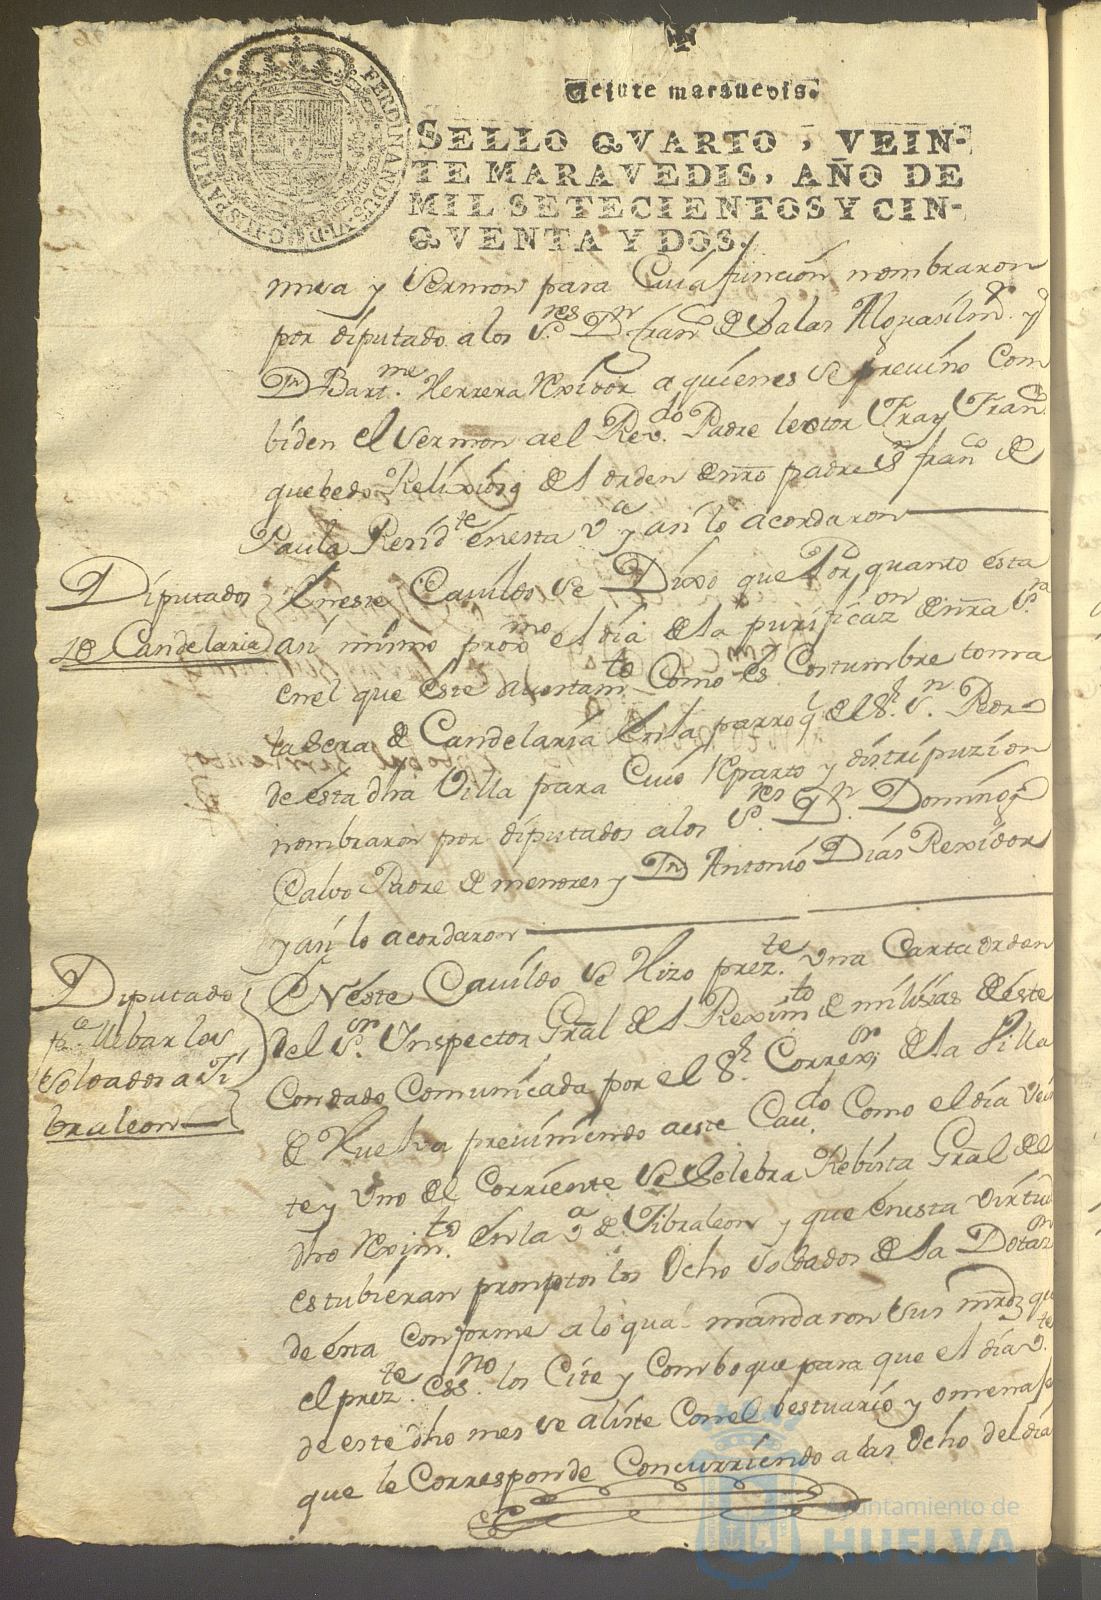 Veinte maravedis.
SELLO QVARTO, VEIN-
TE MARAVEDIS, AÑO DE
MIL SETECIENTOS Y CIN-
QVENTA Y DOS.
FERDINANDUS VI D G HISPANIAR REX
y Sermon para Cuia funcion nombraron
por diputado a los S.res D.n Fran.co de Salas Alguasil m.or y
D.n Bart.me Herrera Rexidor a quienes se previno Com
biden el Sermon ael Rev.do Padre lector Fray Fran.co
quebedo Relixioso del orden de nro padre S.n fran.co de
Paula Resid.te en esta v.a y asi lo acordaron
Diputados
de Candelaria
En este Cavildo se Dixo que Por quanto esta
asi mismo proximo el dia de la purificaz.on de nra S.ra
en el que este aiuntam.to Como es Costumbre toma
la Sera de Candelaria en la parroq.l del S.r S.n Pedro
de esta dha Villa para Cuio Reparto y distripuzion
nombraron por diputados a los S.res D.n Domingo
Calvo Padre de menores y D.n Antonio Dias Rexidor
y asi lo acordaron
Diputado
p.a llebar los
Soldados a Ji
braleon
En este Cavildo se Hizo prez.te una Carta orden
del S.or Inspector Gral del Rexim.to de milisias de este
Condado Comunicada por el S.r Correx.or de la Villa
de Huelva previniendo a este Cav.do Como el dia vein
te y uno del Corriente Se Selebra Rebista Gral del
dho Rexim.to en la v.a de Jibraleon y que en esta virtud
estubieran promptos los Ocho Soldados de la Dotaz.on
de esta Conforme a lo qual mandaron Sus mrdz que
el prez.te ess.no los Cite y Comboque para que el dia v.te
de este dho mes se aliste Con el bestuario y omenaje
que le Corresponde Concurriendo a las Ocho del dia
Ayuntamiento de
HUELVA